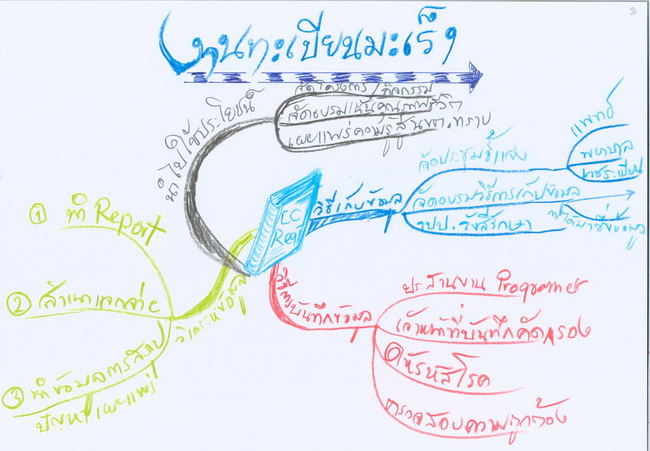 3
ทุนทะเบียนมะเร็ง
นำไปใช้ประโยชน์
จัดโครงการ/กิจกรรม
จัดอบรมเน้นคุณภาพชีวิต
เผยแพร่ความรู้สู่
วิธีเก็บข้อมูล
จัดประชุมชี้แจง
แพทย์
พยาบาล
เวชระเบียน
จัดอบรมวิธีการเก็บข้อมูล
รังสีรักษา
CC
Reg
วิธีการบันทึกข้อมูล
ประสานงาน Programer
เจ้าหน้าที่บันทึกคัดกรอง
ให้รหัสโรค
ตรวจสอบความถูกต้อง
วิเคราะห์ข้อมูล
① ทำ Report
② สำเนาแจกจ่าย
③ ทำข้อมูลการ
ปัญหา เผยแพร่